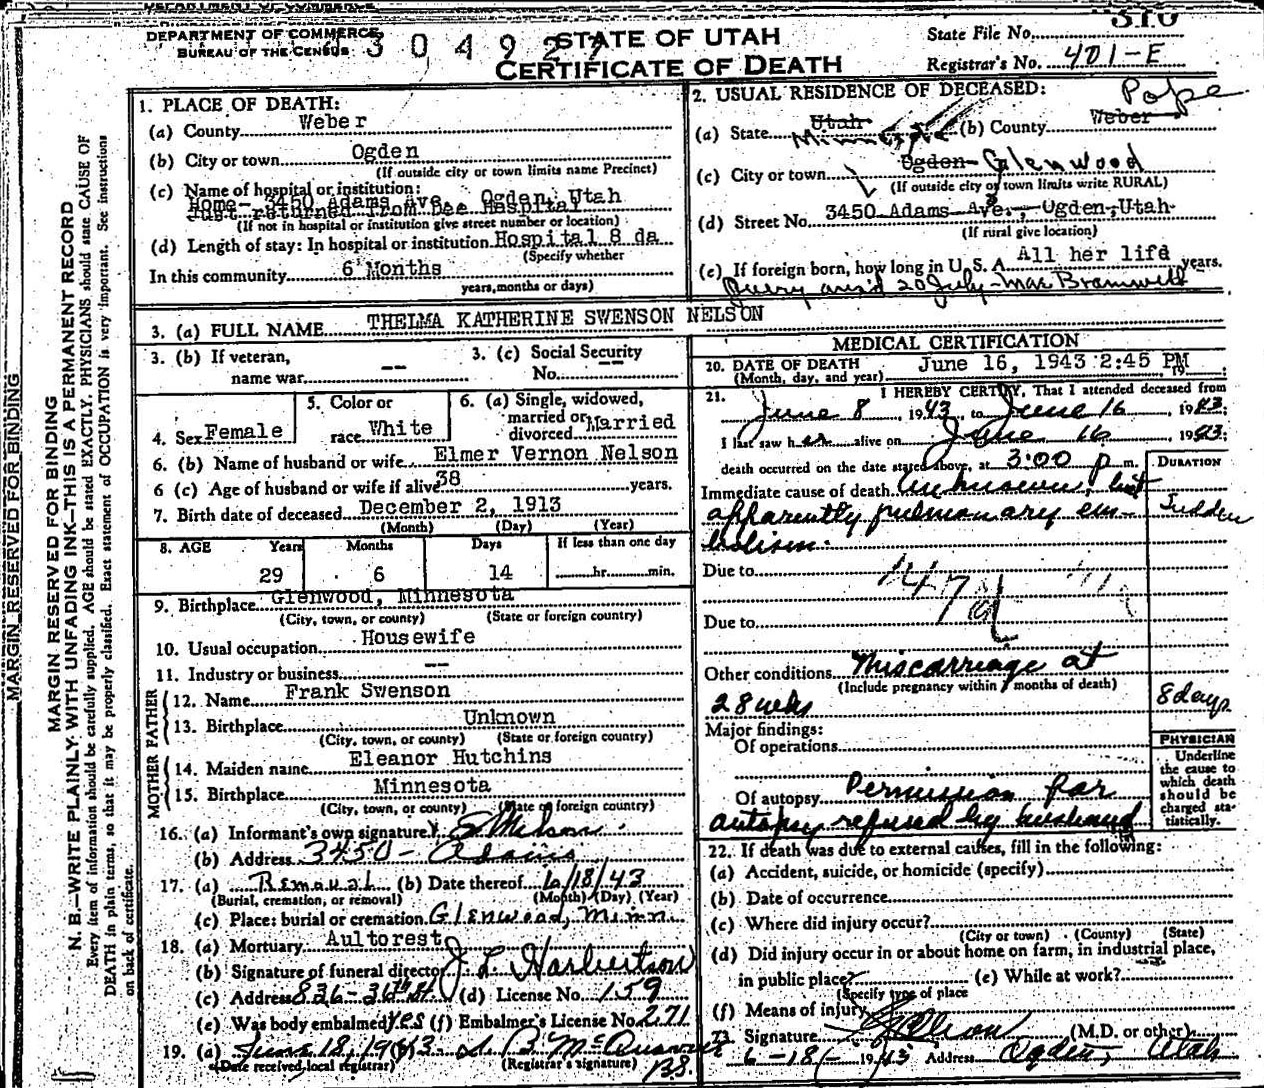 DEPARTMENT OF COMMERCE
BUREAU OF THE CENSUS
304927
STATE OF UTAH
CERTIFICATE OF DEATH
State File No. 310
Registrar's No. 401-E
MARGIN RESERVED FOR BINDING
MARGIN RESERVED FOR BINDING
N. B.—WRITE PLAINLY WITH UNFADING INK—THIS IS A PERMANENT RECORD
Every item of information should be carefully supplied. AGE should be stated EXACTLY. PHYSICIANS should state CAUSE OF
DEATH in plain terms, so that it may be properly classified. Exact statement of OCCUPATION is very important. See instructions
on back of certificate.
1. PLACE OF DEATH:
(a) County Weber
(b) City or town Ogden
(If outside city or town limits name Precinct)
(c) Name of hospital or institution:
Home- 3450 Adams Ave. Ogden, Utah
Just returned from Dee Hospital
(If not in hospital or institution give street number or location)
(d) Length of stay: In hospital or institution Hospital 8 da
(Specify whether
In this community 6 Months
years, months or days)
2. USUAL RESIDENCE OF DECEASED:
Pope
(a) State Utah Minnesota (b) County Weber
(c) City or town Ogden Glenwood
(If outside city or town limits write RURAL)
(d) Street No. 3450 Adams Ave., Ogden, Utah
(If rural give location)
(e) If foreign born, how long in U. S. A. All her life years.
20 July - Mae Bramwell
3. (a) FULL NAME THELMA KATHERINE SWENSON NELSON
3. (b) If veteran,
name war --
3. (c) Social Security
No. --
4. Sex Female
5. Color or
race White
6. (a) Single, widowed,
married or
divorced Married
6. (b) Name of husband or wife Elmer Vernon Nelson
6 (c) Age of husband or wife if alive 38 years.
7. Birth date of deceased December 2, 1913
(Month) (Day) (Year)
8. AGE Years Months Days If less than one day
29 6 14 hr. min.
9. Birthplace Glenwood, Minnesota
(City, town, or county) (State or foreign country)
10. Usual occupation Housewife
11. Industry or business --
FATHER
12. Name Frank Swenson
13. Birthplace Unknown
(City, town, or county) (State or foreign country)
MOTHER
14. Maiden name Eleanor Hutchins
15. Birthplace Minnesota
(City, town, or county) (State or foreign country)
16. (a) Informant's own signature E Nelson
(b) Address 3450 - Adams
17. (a) Removal (b) Date thereof 6/18/43
(Burial, cremation, or removal) (Month) (Day) (Year)
(c) Place: burial or cremation Glenwood, Minn
18. (a) Mortuary Aultorest
(b) Signature of funeral director J L Harbertson
(c) Address 836-36th St. (d) License No. 159
(e) Was body embalmed yes (f) Embalmer's License No. 271
19. (a) June 18, 1943
(Date received, local registrar) (Registrar's signature)
MEDICAL CERTIFICATION
20. DATE OF DEATH June 16, 1943 2:45 PM
(Month, day, and year) 19
21. I HEREBY CERTIFY, That I attended deceased from
June 8, 1943, to June 16, 1943;
I last saw her alive on June 16 1943;
death occurred on the date stated above, at 3:00 p m.
DURATION
Immediate cause of death Unknown, but
apparently pulmonary em-
bolism. Sudden
Due to
147d
Due to
Other conditions Miscarriage at
(Include pregnancy within months of death)
28 wks 8 days
Major findings:
Of operations
Of autopsy Permission for
autopsy refused by husband
PHYSICIAN
Underline
the cause to
which death
should be
charged sta-
tistically.
22. If death was due to external causes, fill in the following:
(a) Accident, suicide, or homicide (specify)
(b) Date of occurrence
(c) Where did injury occur?
(City or town) (County) (State)
(d) Did injury occur in or about home on farm, in industrial place,
in public place? (e) While at work?
(Specify type of place
(f) Means of injury
23. Signature (M.D. or other)
6-18- 1943 Address Ogden, Utah